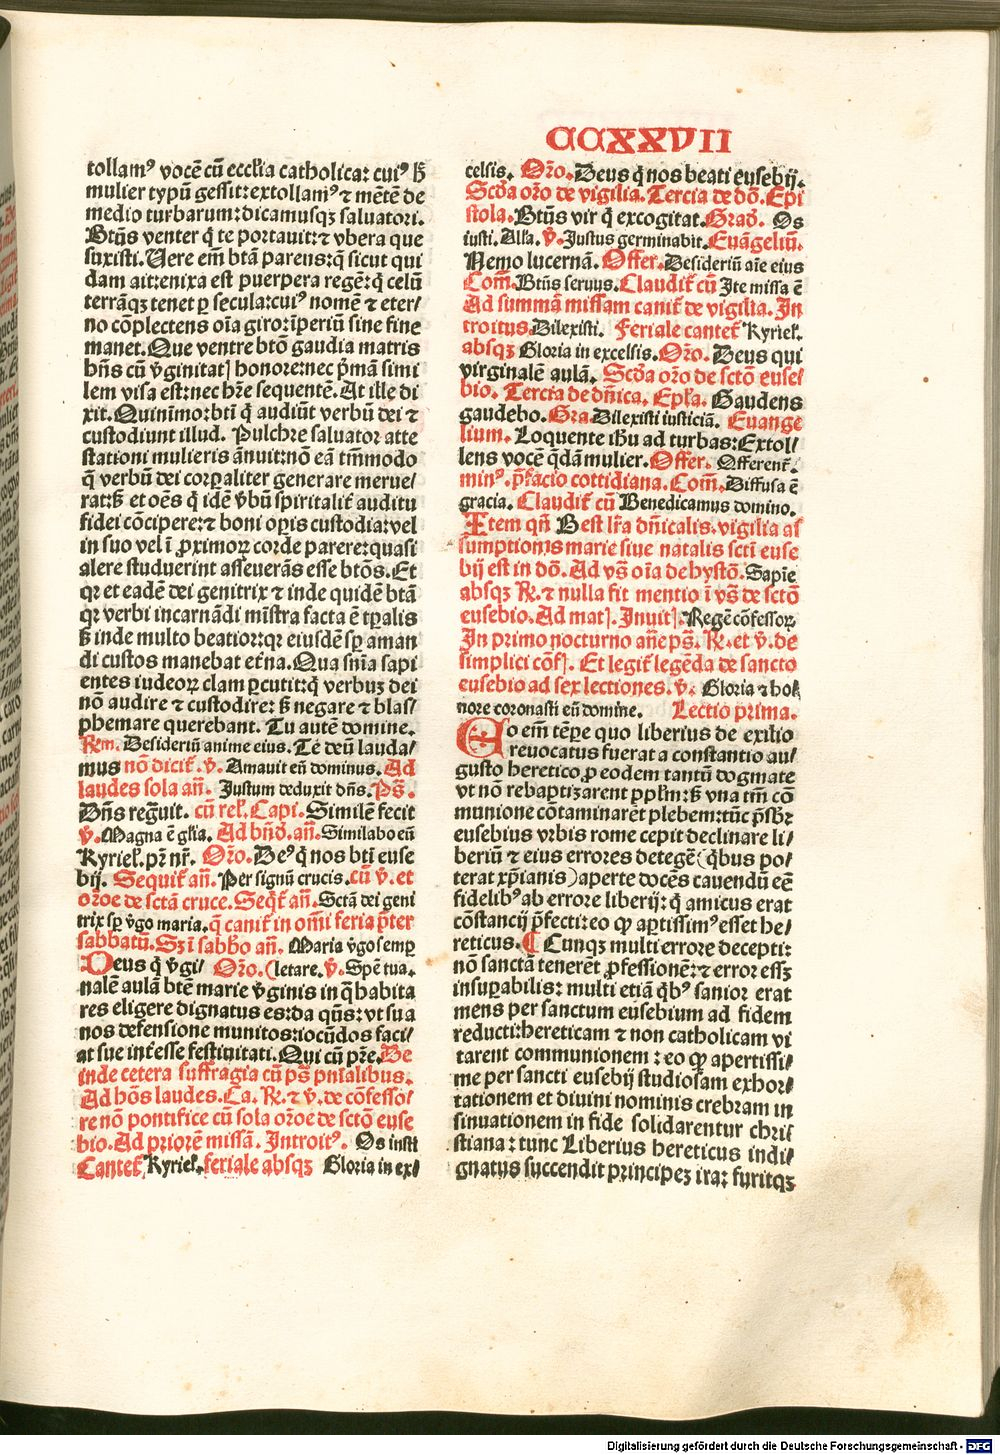 CCXXVII
tollamꝰ vocē cū ecclīa catholica: cuiꝰ h̄
mulier typū gessit: extollamꝰ ⁊ mētē de
medio turbarum: dicamusqꝫ saluatori.
Btūs venter q̄ te portauit: ⁊ vbera que
suxisti. Uere em̄ btā parens: q̄ sicut qui
dam ait: enixa est puerpera regē: q̄ celū
terrāqꝫ tenet ꝑ secula: cuiꝰ nomē ⁊ eter/
no cōplectens oīa giro: īperiū sine fine
manet. Que ventre btō gaudia matris
hn̄s cū v̄ginitatꝭ honore: nec p̄mā simi
lem visa est: nec hr̄e sequentē. At ille di
xit. Quinīmo: btī q̄ audiūt verbū dei ⁊
custodiunt illud. Pulchre saluator atte
stationi mulieris ānuit: nō eā tm̄modo
q̄ verbū dei corꝑaliter generare merue/
rat: ꝫ et oēs q̄ idē v̄bū spiritalit̄ auditu
fidei cōcipere: ⁊ boni oꝑis custodia: vel
in suo vel ī ꝓximoꝝ corde parere: ⁊ quasi
alere studuerint asseuerās esse btōs. Et
qꝛ et eadē dei genitrix ⁊ inde quidē btā
qꝛ verbi incarnādi mīstra facta ē tꝑalis
ꝫ inde multo beatior: qꝛ eiusdē sꝑ aman
di custos manebat et̄na. Qua sn̄ia sapi
entes iudeoꝝ clam ꝑcutit: q̄ verbuꝫ dei
nō audire ⁊ custodire: ꝫ negare ⁊ blas/
phemare querebant. Tu autē domine.
Rm̄. Desideriū anime eius. Te deū lauda/
mus nō dicit̄. v̄. Amauit eū dominus. Ad
laudes sola an̄. Justum deduxit dn̄s. Ps̄.
Dn̄s regūit. cū rel̄. Capi. Similē fecit
v̄. Magna ē gl̄ia. Ad bn̄d̄. an̄. Similabo eū
Kyriel̄. pr̄ nr̄. Or̄o. Deꝰ q̄ nos btī euse
bij. Sequit̄ an̄. Per signū crucis. cū v̄. et
or̄oe de sctā cruce. Seq̄t̄ an̄. Sctā dei geni
trix sꝑ v̄go maria. q̄ canit̄ in om̄i feria p̄ter
sabbatū. Sꝫ ī sabb̄o an̄. Maria v̄go semꝑ
Deus q̄ v̄gi/ Or̄o. (letare. v̄. Spē tua.
nalē aulā btē marie v̄ginis in q̄ habita
res eligere dignatus es: da qn̄s: vt sua
nos defensione munitos: iocūdos faci/
at sue int̄esse festiuitati. Qui cū pr̄e. De
inde cetera suffragia cū ps̄ pn̄ialibus.
Ad hōs laudes. Ca. R̄. ⁊ v̄. de cōfesso/
re nō pontifice cū sola or̄oe de sctō euse
bio. Ad priorē missā. Introitꝰ. Os iusti
Cantet̄. Kyriel̄. feriale absqꝫ Gloria in ex/
celsis. Or̄o. Deus q̄ nos beati eusebij.
Scd̄a or̄o de vigilia. Tercia de dō. Epi
stola. Btūs vir q̄ excogitat. Grad̄. Os
iusti. Alla. v̄. Justus germinabit. Euāgeliū.
Nemo lucernā. Offer. Desideriū aīe eius
Com̄. Btūs seruus. Claudit̄ cū Ite missa ē
Ad summā missam canit̄ de vigilia. In
troitus. Dilexisti. Feriale cantet̄ Kyriel̄.
absqꝫ Gloria in excelsis. Or̄o. Deus qui
virginalē aulā. Scd̄a or̄o de sctō euse/
bio. Tercia de dn̄ica. Epl̄a. Gaudens
gaudebo. Gra. Dilexisti iusticiā. Euange
lium. Loquente ih̄u ad turbas: Extol/
lens vocē q̄dā mulier. Offer. Offerent̄.
minꝰ. p̄facio cottidiana. Com̄. Diffusa ē
gracia. Claudit̄ cū Benedicamus domino.
Item qn̄ B est lr̄a dn̄icalis. vigilia as
sumptionis marie siue natalis sctī euse
bij est in dō. Ad vs̄ oīa de hystō. Sapīe
absqꝫ R̄. ⁊ nulla fit mentio ī vs̄ de sctō
eusebio. Ad matꝭ. Inuitꝭ. Regē cōfessoꝝ
In primo nocturno an̄e ps̄. R̄. et v̄. de
simplici cōfꝭ. Et legit̄ legēda de sancto
eusebio ad sex lectiones. v̄. Gloria ⁊ ho/
nore coronasti eū domine. Lectio prima.
Eo em̄ tēpe quo liberius de exilio
reuocatus fuerat a constantio au/
gusto heretico, ꝓ eodem tantū dogmate
vt nō rebaptizarent ꝓpl̄m: ꝫ vna tm̄ cō
munione cōtaminaret plebem: tūc p̄sbr̄
eusebius vrbis rome cepit declinare li/
beriū ⁊ eius errores detegē (q̄bus po/
terat xp̄ianis) aperte docēs cauendū eē
fidelibꝰ ab errore liberij: q̄ amicus erat
cōstancij p̄fecti: eo ꝙ aꝑtissimꝰ esset he/
reticus. ¶ Cunqꝫ multi errore decepti:
nō sanctā teneret ꝓfessionē: ⁊ error essꝫ
insuꝑabilis: multi etiā q̄bꝰ sanior erat
mens per sanctum eusebium ad fidem
reducti: hereticam ⁊ non catholicam vi
tarent communionem: eo ꝙ apertissi/
me per sancti eusebij studiosam exhor/
tationem et diuini nominis crebram in
sinuationem in fide solidarentur chri/
stiana: tunc Liberius hereticus indi/
gnatus succendit principeꝫ ira: furitqꝫ
Digitalisierung gefördert durch die Deutsche Forschungsgemeinschaft - DFG